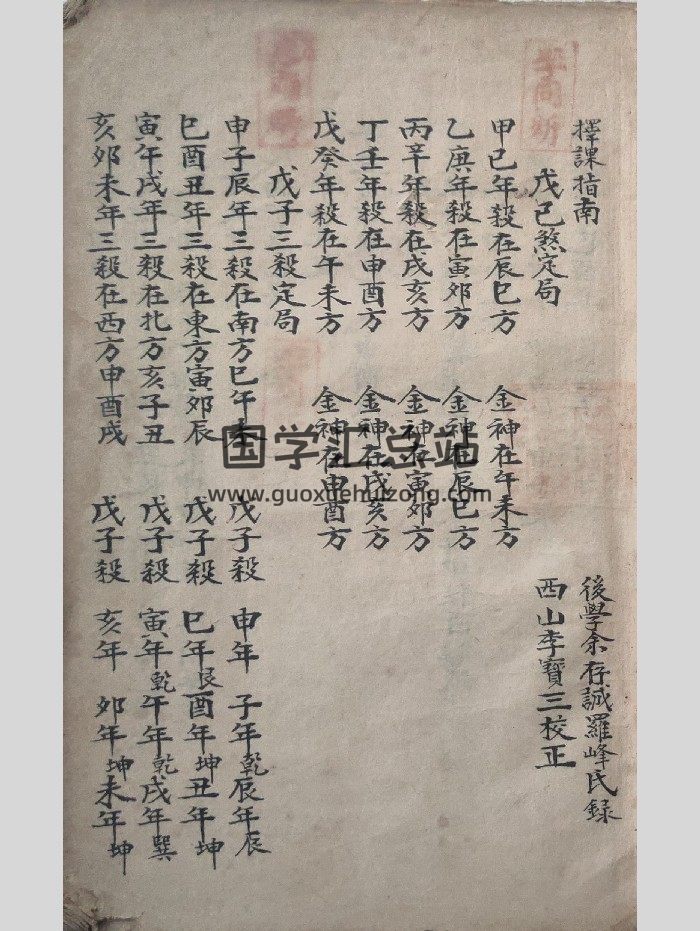 擇課指南
後學余存誠羅峰氏錄
戊己煞定局
西山李寶三校正
甲己年殺在辰巳方 金神在午未方
乙庚年殺在寅郊方 金神在辰巳方
丙辛年殺在戌亥方 金神在寅郊方
丁壬年殺在申酉方 金神在戌亥方
戊癸年殺在午未方 金神在申酉方
戊子三殺定局
申子辰年三殺在南方巳午未 戊子殺 申年 子年乾辰年辰
巳酉丑年三殺在東方寅郊辰 戊子殺 巳年艮酉年坤丑年坤
寅午戌年三殺在北方亥子丑 戊子殺 寅年乾午年乾戌年巽
亥郊未年三殺在西方申酉戌 戊子殺 亥年 郊年坤未年坤
国学汇总站
www.guoxuehuizong.com